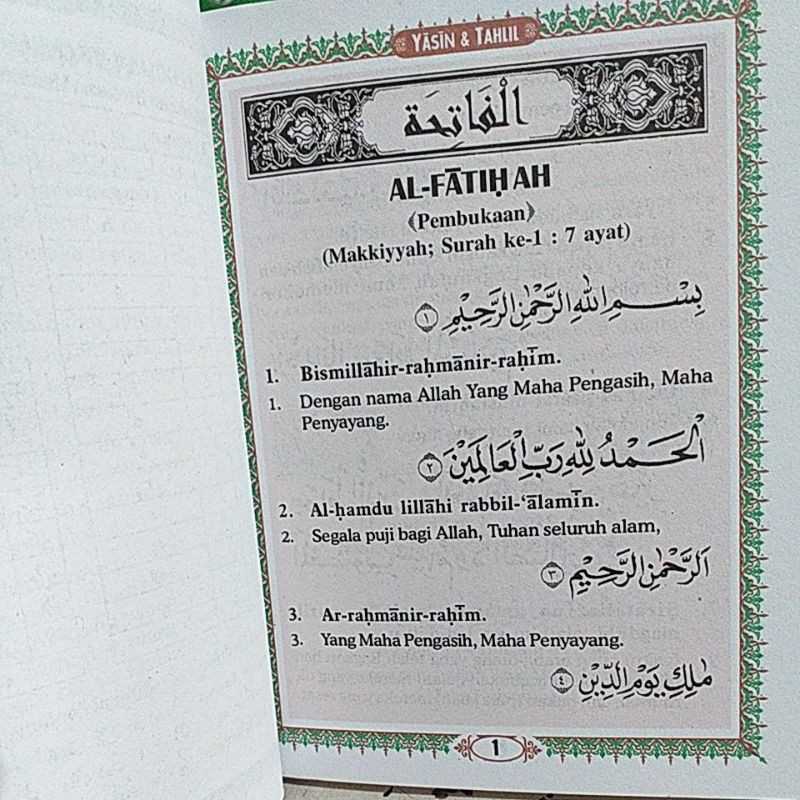 YĀSĪN & TAHLIL
الْفَاتِحَة
AL-FĀTIḤAH
《Pembukaan》
(Makkiyyah; Surah ke-1 : 7 ayat)
بِسْمِ اللّٰهِ الرَّحْمٰنِ الرَّحِيْمِ ۝١
1. Bismillāhir-raḥmānir-raḥīm.
1. Dengan nama Allah Yang Maha Pengasih, Maha
Penyayang.
الْحَمْدُ لِلّٰهِ رَبِّ الْعَالَمِيْنَ ۝٢
2. Al-ḥamdu lillāhi rabbil-‘ālamīn.
2. Segala puji bagi Allah, Tuhan seluruh alam,
اَلرَّحْمٰنِ الرَّحِيْمِ ۝٣
3. Ar-raḥmānir-raḥīm.
3. Yang Maha Pengasih, Maha Penyayang.
مٰلِكِ يَوْمِ الدِّيْنِ ۝٤
1